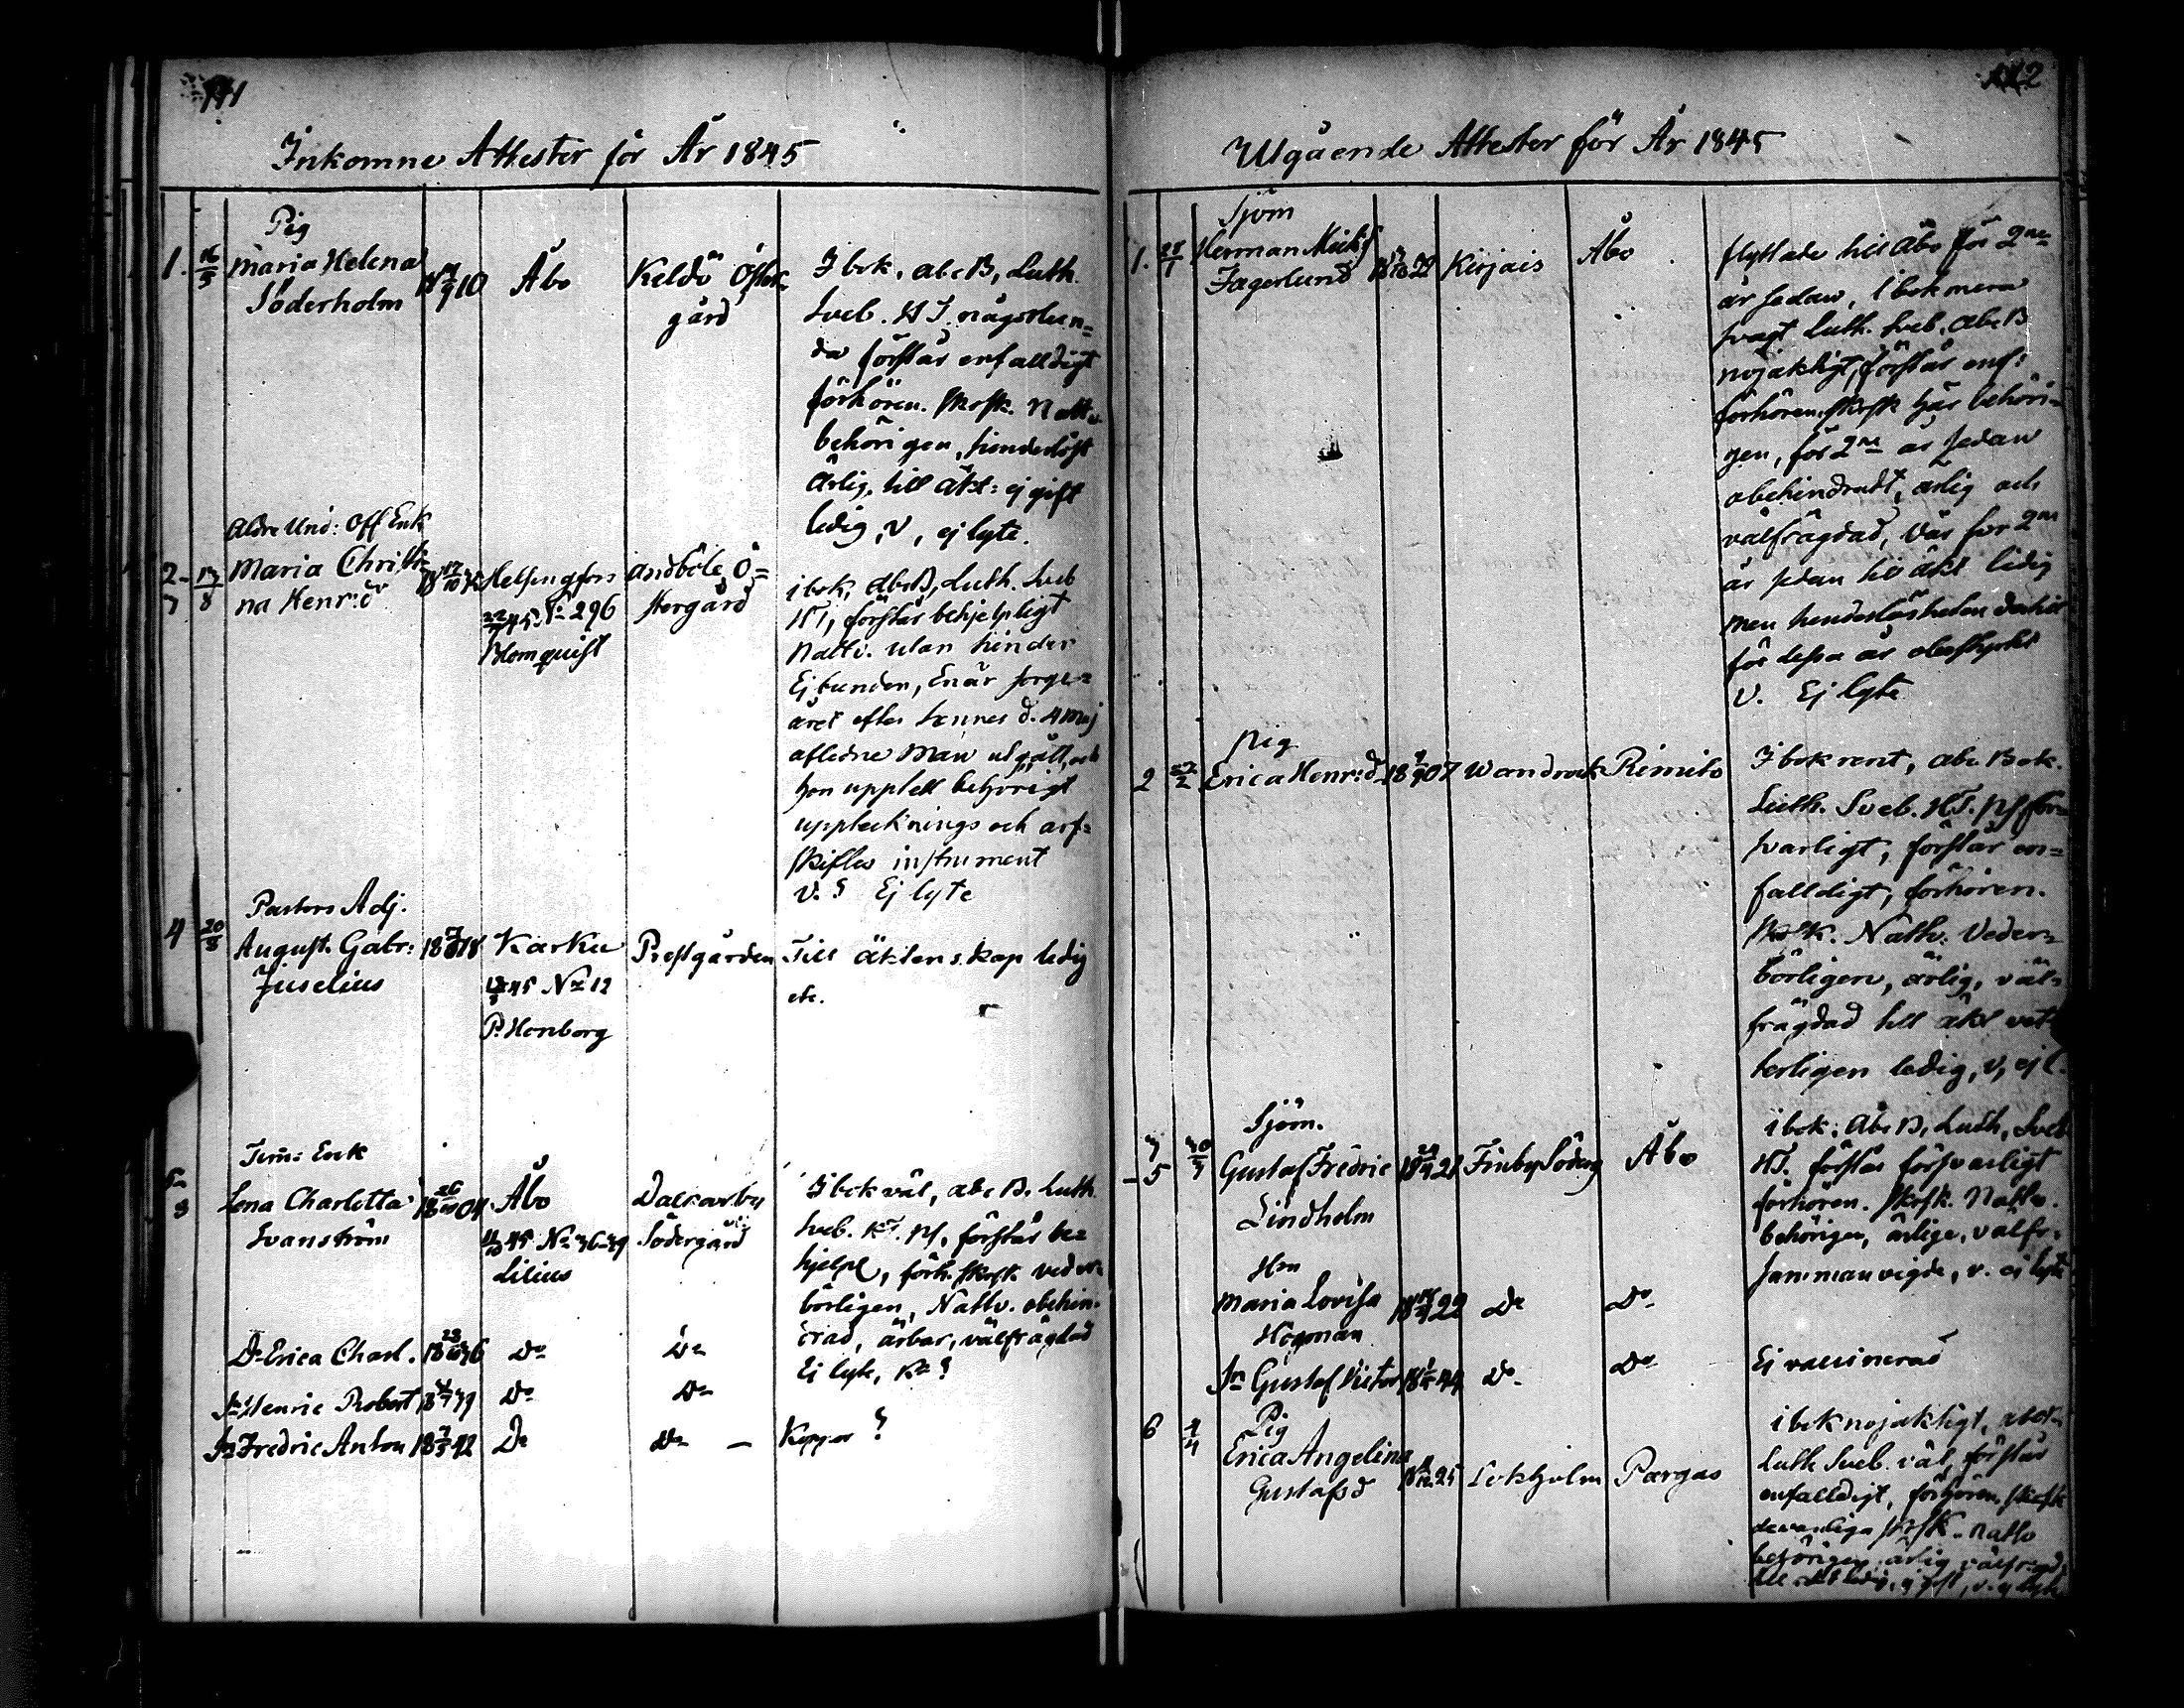 Inkomne Attester för År 1845
1. 16/5
Pig
Maria Helena
Söderholm
Åbo
Keldö Öster=
gård
I bok, abc B, Luth.
Sveb. HT någorlun=
da förstår enfalldigt
förhören. skrsk. Nattv.
behörigen, hinderlöst
Ärlig, till äkt: ej gift
ledig, V, ej lyte.
Aldre Und: Off Enk
Maria Christi
na Henr:dr
Helsingfors
22/7 45. No 296
Blomquist
Andböle Ö=
stergård
i bok, abcB, Luth. Sveb
HT, förstår behjelpligt
Nattv. utan hinder
Ej bunden, Enär sorge=
året efter hennes d. 4 Maj
aflidne Man utgått, och
hon upptett behörigt
uppteknings och arf=
skiftes instrument
V. ? Ej lyte
4 20/8
Pastors Adj.
August. Gabr:
Juselius
Karku
45 No 12
P. Honborg
Prestgården
Till äktenskap ledig
etc.
Tim: Enk
Lena Charlotta
Svanström
Åbo
45 No
Lilius
Dalkarby
Södergård
I bok väl, abc B. Luth
Sveb. HT. Ps, förstår be=
hjelpl, förh. skrsk veder=
börligen, Nattv. obehin=
drad, ärbar, välfrägdad
Ej lyte, Kr ?
Dr Erica Charl.
Do
Do
Sn Henric Robert
Do
Do
Sn Fredric Anton
Do
Do —
Koppor ?
112
Utgående Attester för År 1845
1.
Sjöm
Herman
Jagerlund
Kirjais
Åbo
flyttade till Åbo för 2ne
år sedan, i bok mera
svagt Luth. Sveb. Abc B
nöjaktigt, förstår enf:
förhören, skrsk här behöri=
gen, för 2ne år sedan
obehindradt, ärlig och
välfrägdad, Var för 2ne
år sedan till äkt ledig
men hinderlösheten
för dessa år obestyrkt
V. Ej lyte
2
Pig
Erica Henr:dr
Wandrock
Rimito
I bok rent, abc Bok.
Luth. Sveb. HT. Ps för=
svarligt, förstår en=
falldigt, förhören.
skrsk. Nattv. Veder=
börligen, ärlig, väl=
frägdad till äkt vet=
terligen ledig, V, ej l.
Sjöm.
Gustaf Fredric
Lindholm
Finby Söderg
Åbo
i bok. Abc B, Luth, Sveb
HT. förstår försvarligt
förhören. skrsk. Nattv.
behörigen, ärlige, välfr.
samman vigde, v. ej lyte
Hn
Maria Lovisa
Högman
Do
Do
Sn Gustaf Victor
Do
Do
Ej vaccinerad
6 4/4
Pig
Erica Angelina
Gustafsd
Lokholm
Pargas
i bok nöjaktigt,
Luth Sveb. väl, förstår
enfalldigt, förhören,
skrsk. Nattv
behörigen ärlig välfrägd